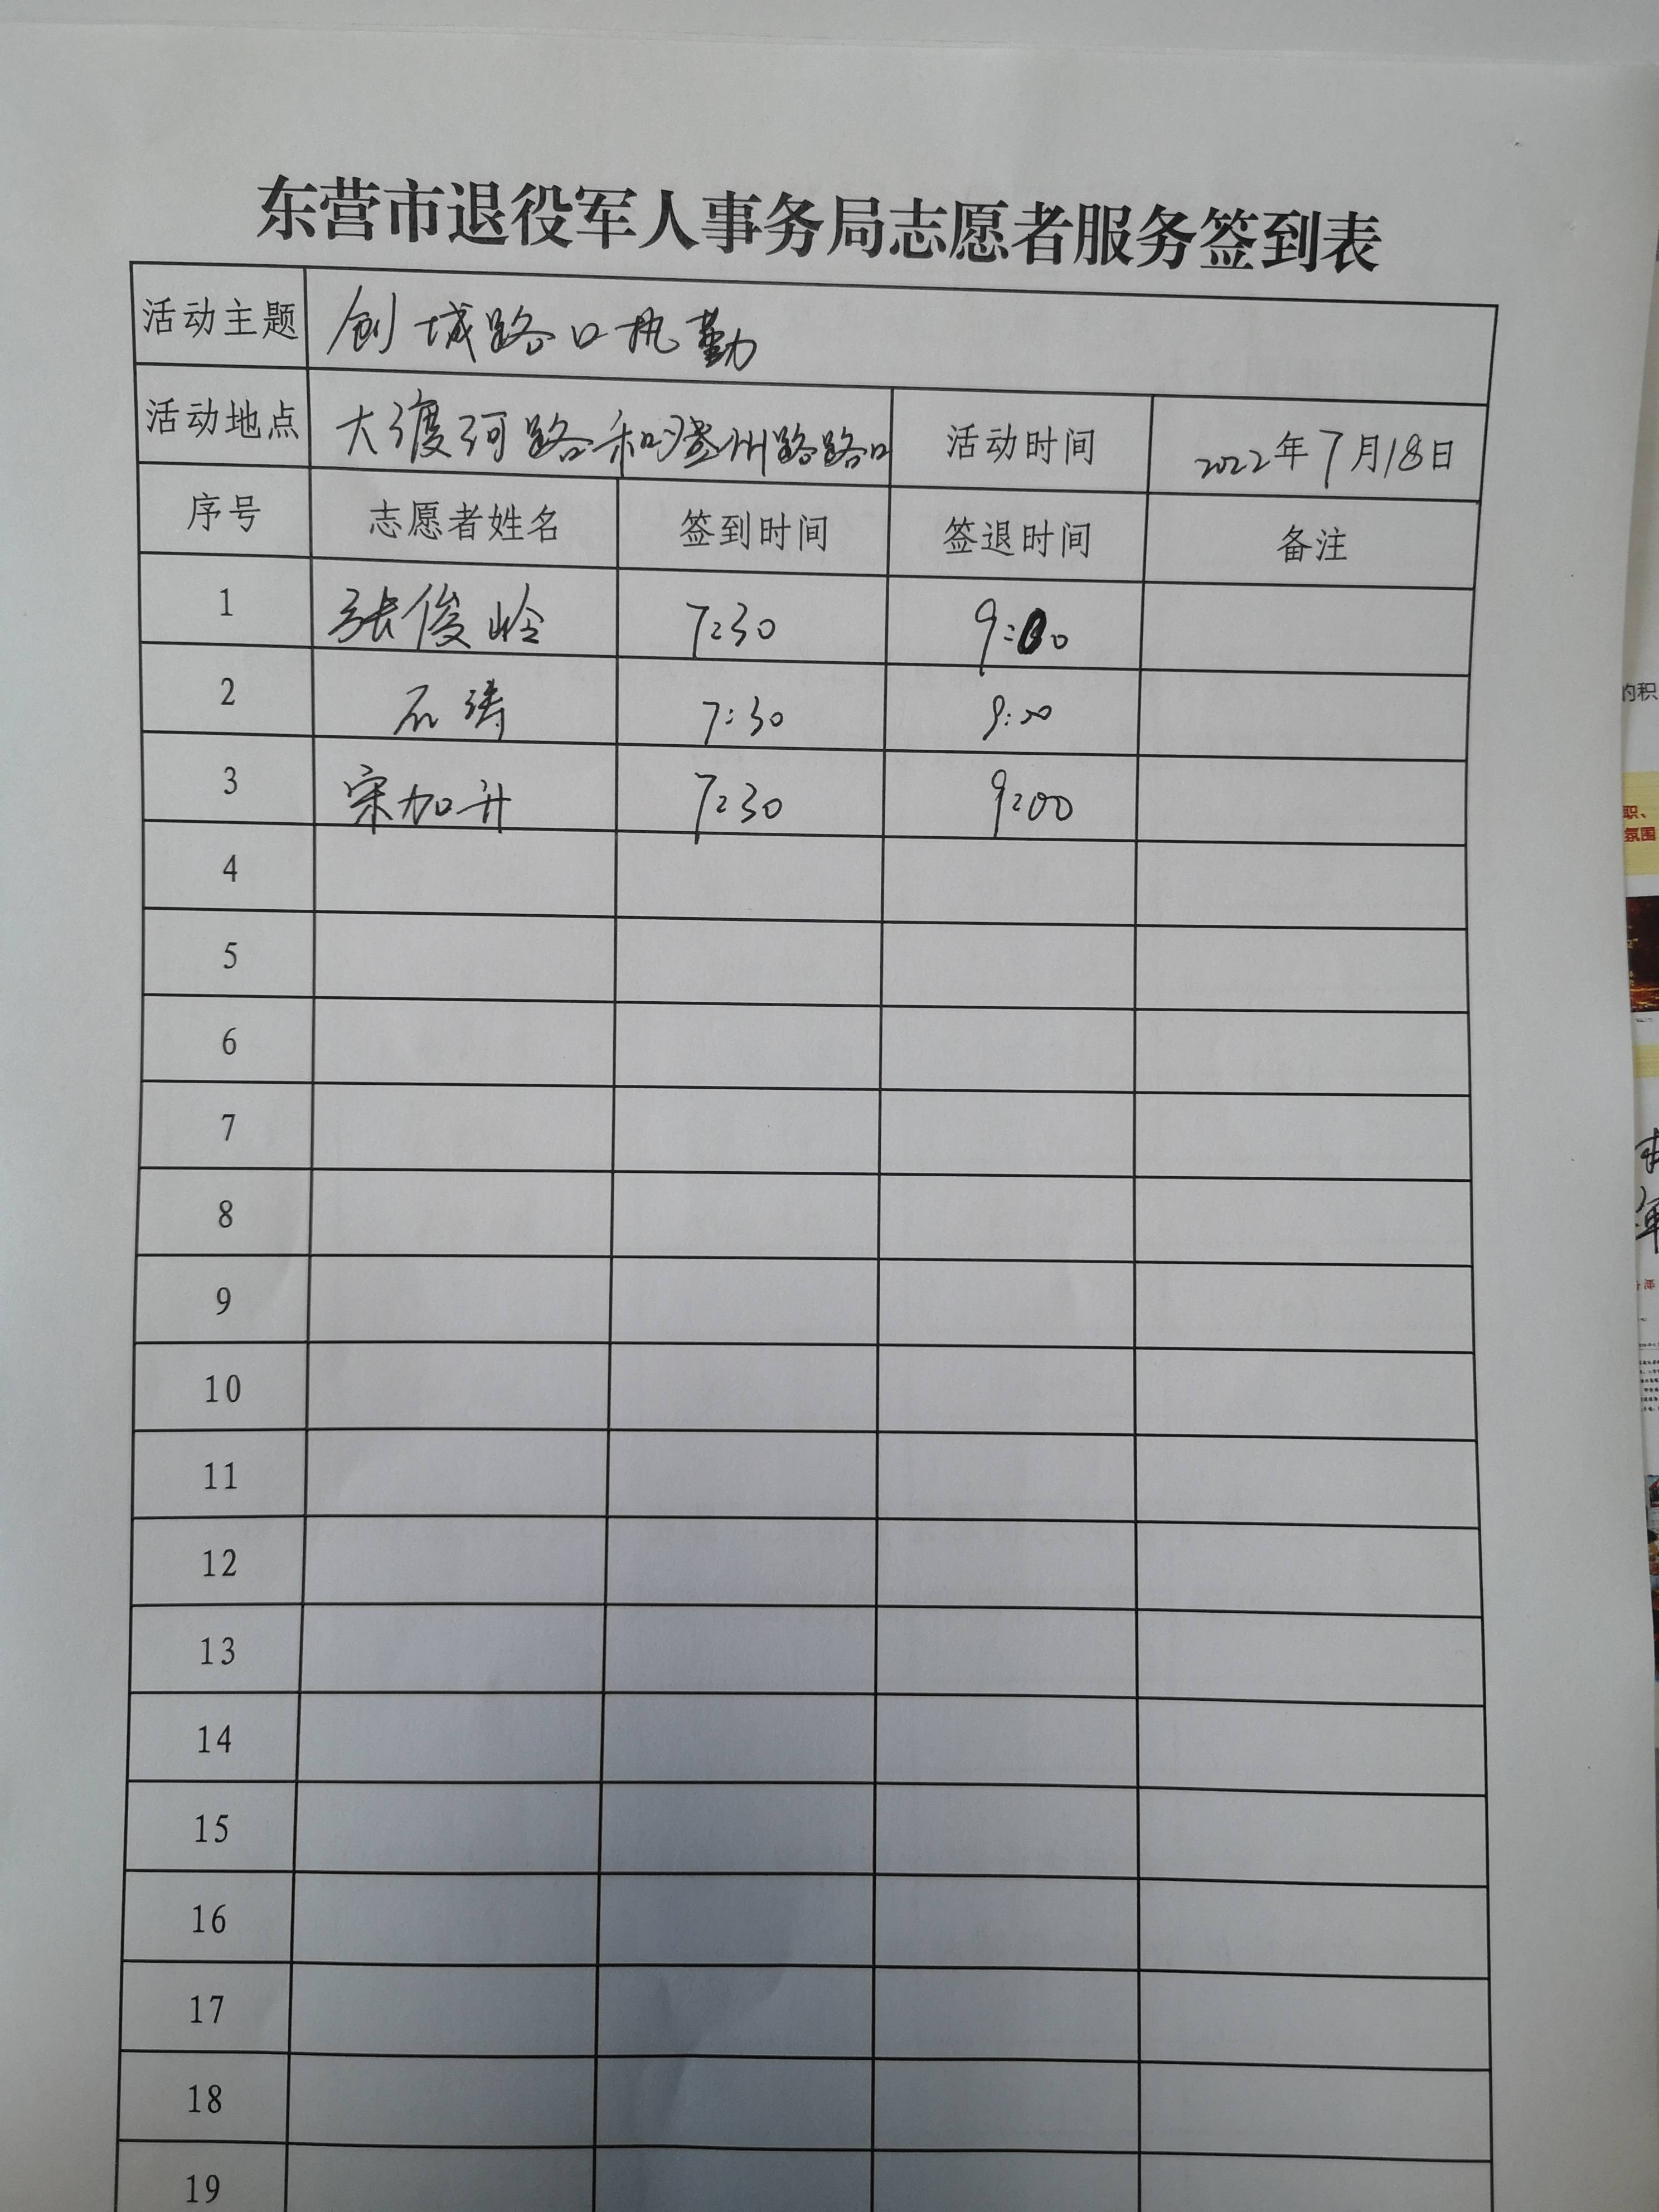 东营市退役军人事务局志愿者服务签到表
活动主题 创城路口执勤
活动地点 大渡河路和登州路路口 活动时间 2022年7月18日
序号 志愿者姓名 签到时间 签退时间 备注
1 张俊岭 7:30 9:00
2 石涛 7:30 9:00
3 宋加升 7:30 9:00
4
5
6
7
8
9
10
11
12
13
14
15
16
17
18
19
的积
职、
氛围